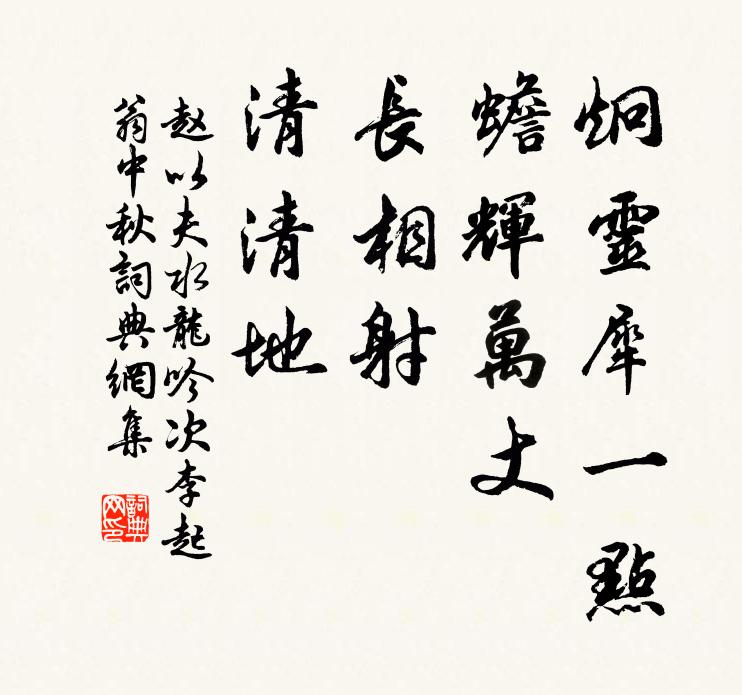 炯靈犀一點
蟾輝萬丈
長相射
清清地
赵以夫水龍吟次李起
翁中秋詞典網集
詞典網印